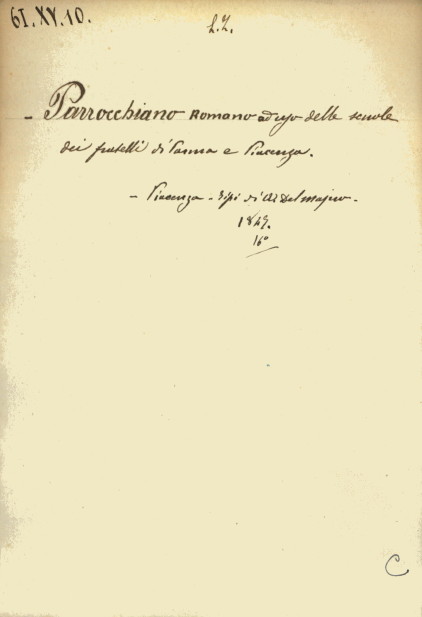 61.XV.10.
L.Z.
- Parrocchiano Romano ad uso delle scuole
dei fratelli di Parma e Piacenza.
- Piacenza - Tipi di A. Del Majno -
1847.
16º
C